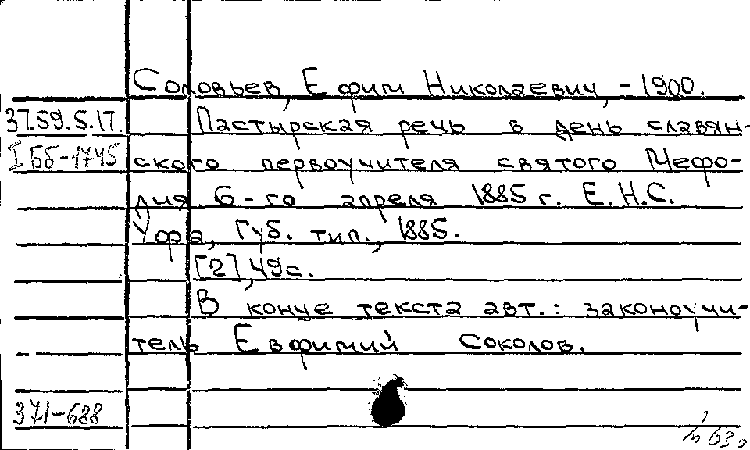 Соловьев, Ефим Николаевич, -1900.
37.59.5.17. Пастырская речь в день славян-
I Бб-1745 ского первоучителя святого Мефо-
дия 6-го апреля 1885 г. Е.Н.С.
Уфа, Губ. тип., 1885.
[2],49с.
В конце текста авт.: законоучи-
тель Евфимий Соколов.
371-688